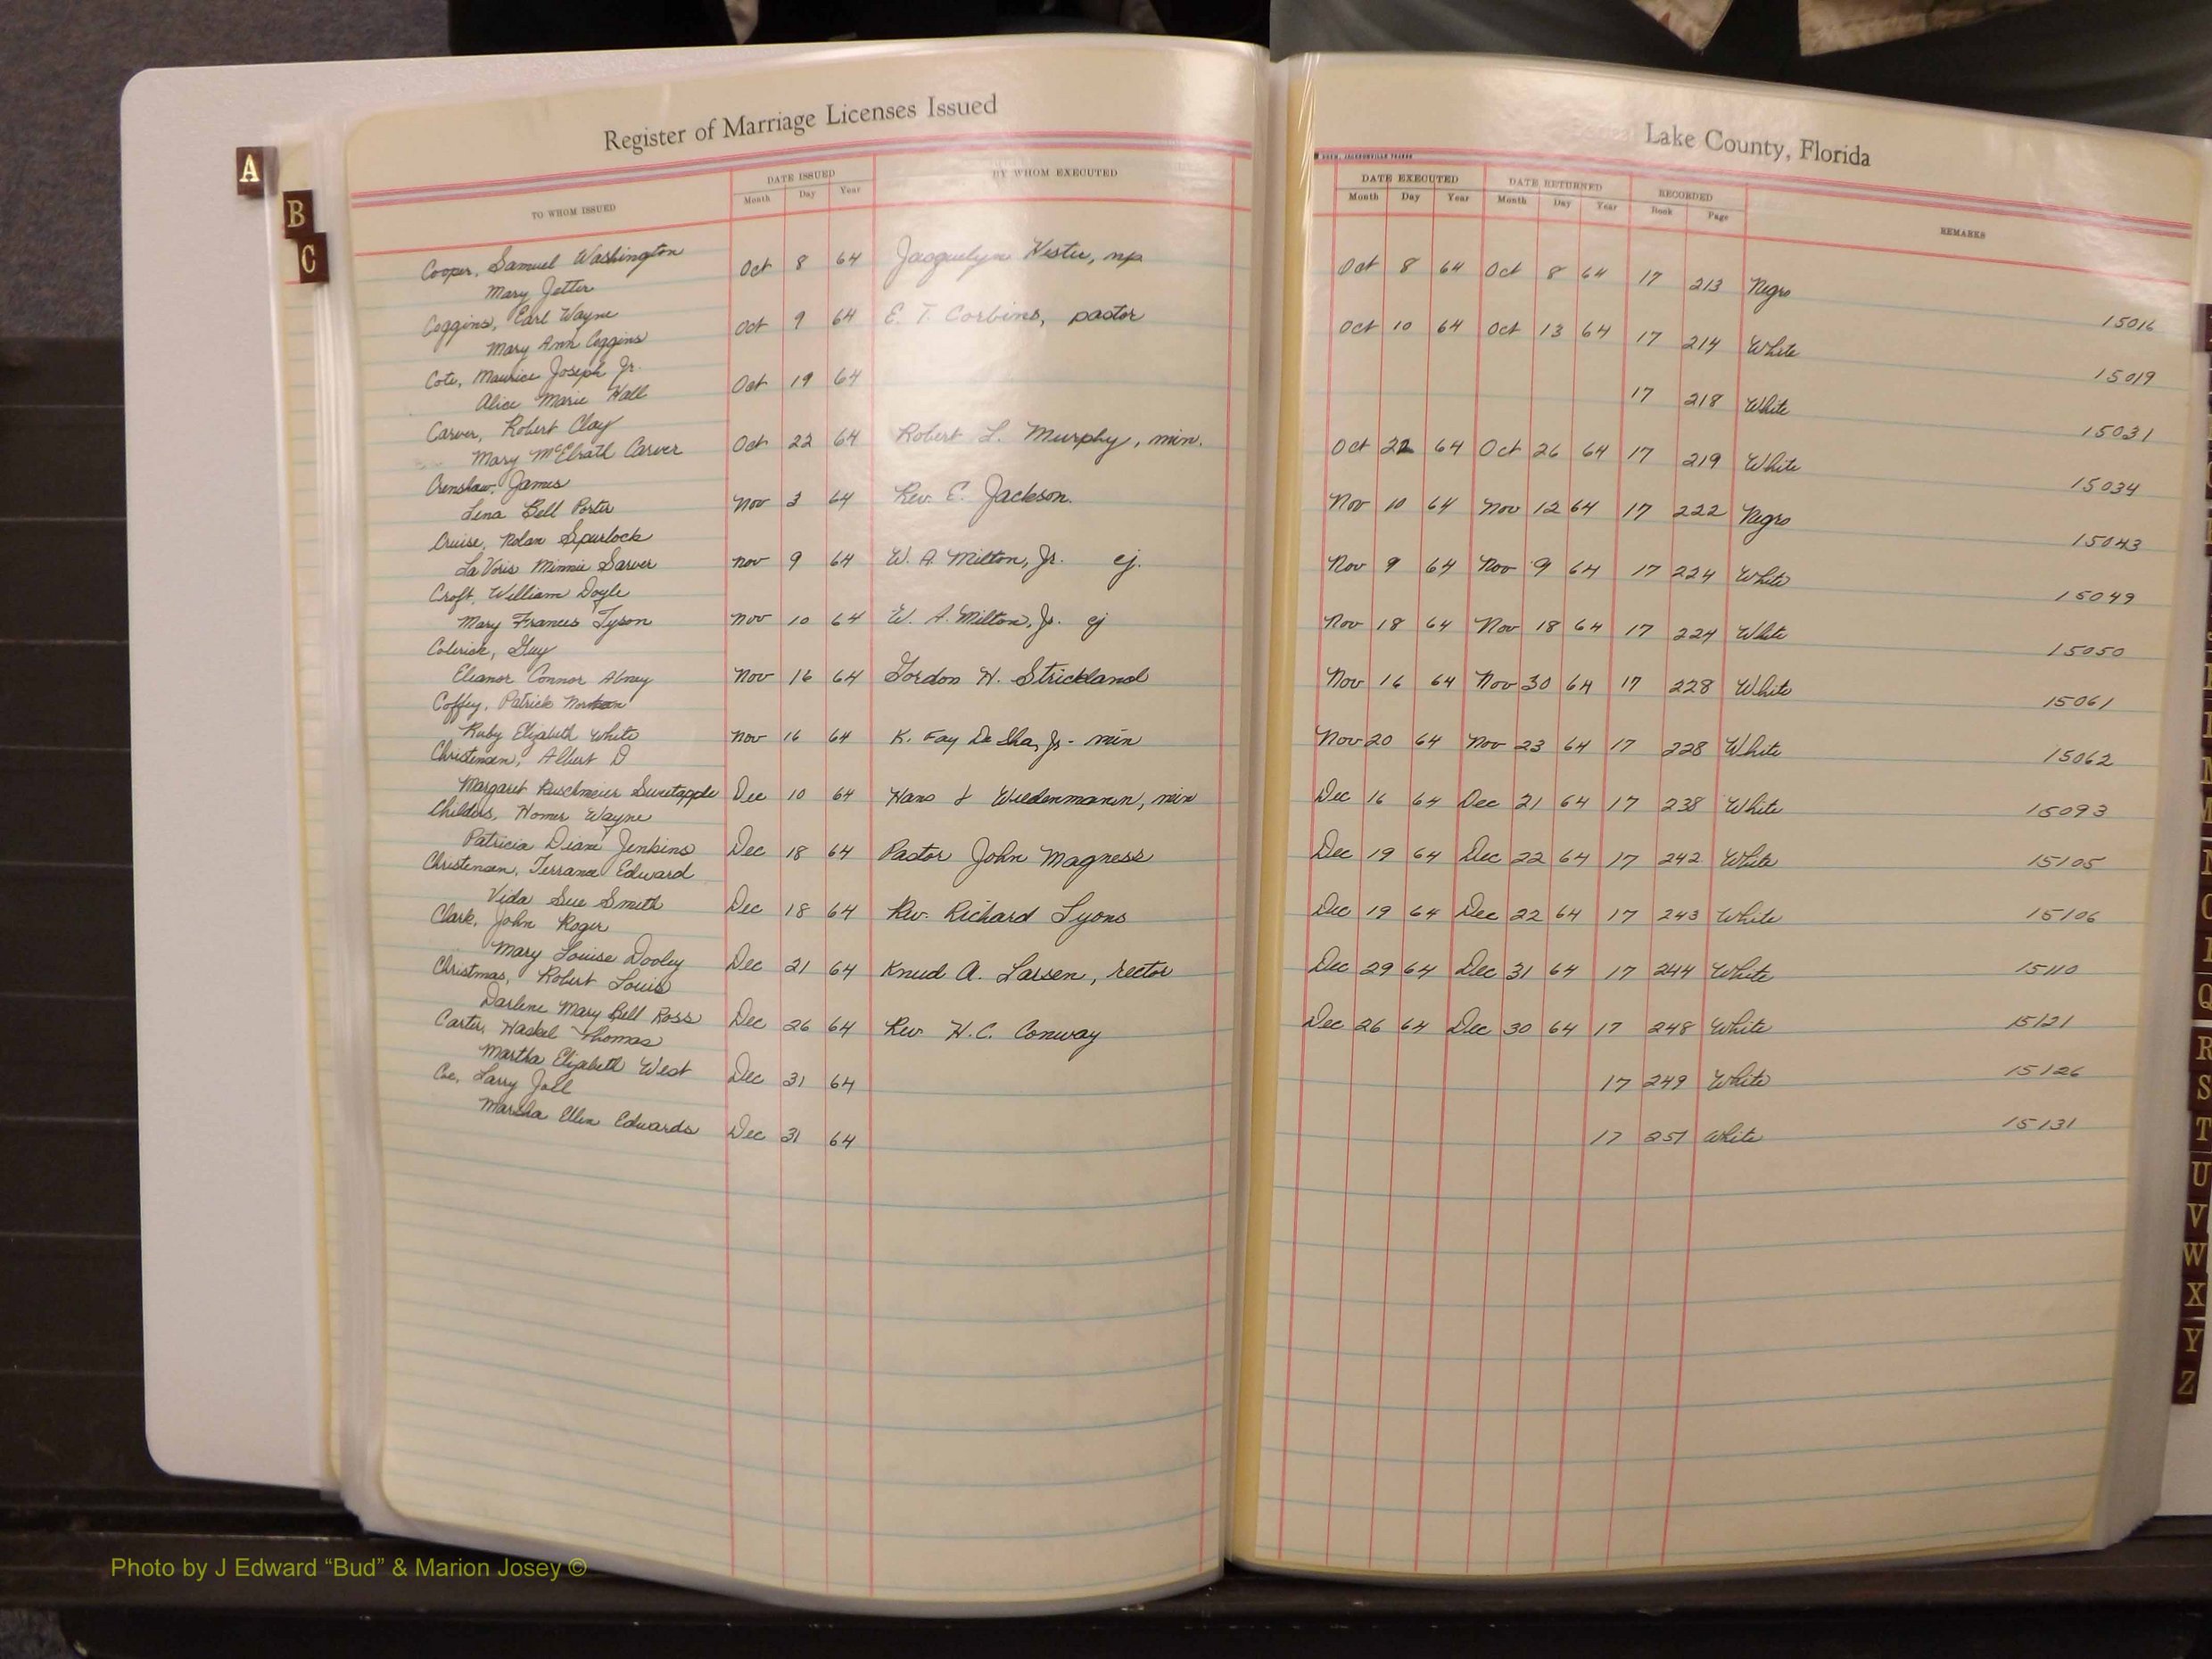 Register of Marriage Licenses Issued
Lake County, Florida
TO WHOM ISSUED
DATE ISSUED
Month Day Year
BY WHOM EXECUTED
DATE EXECUTED
Month Day Year
DATE RETURNED
Month Day Year
RECORDED
Book Page
REMARKS
Cooper, Samuel Washington
Mary Jetter Oct 8 64 Jacquelyn Hester, np Oct 8 64 Oct 8 64 17 213 Negro 15016
Coggins, Earl Wayne
Mary Ann Coggins Oct 9 64 E. T. Corbins, pastor Oct 10 64 Oct 13 64 17 214 White 15019
Cote, Maurice Joseph Jr.
Alice Marie Hall Oct 19 64 17 218 White 15031
Carver, Robert Clay
Mary McElrath Carver Oct 22 64 Robert L. Murphy, min. Oct 22 64 Oct 26 64 17 219 White 15034
Crenshaw, James
Lena Bell Porter Nov 3 64 Rev. E. Jackson. Nov 10 64 Nov 12 64 17 222 Negro 15043
Cruise, Nolan Spurlock
LaVoris Minnie Sarver Nov 9 64 W. A. Milton, Jr. cj. Nov 9 64 Nov 9 64 17 224 White 15049
Croft, William Doyle
Mary Frances Tyson Nov 10 64 W. A. Milton, Jr. cj Nov 18 64 Nov 18 64 17 224 White 15050
Colerick, Guy
Eleanor Connor Abney Nov 16 64 Gordon H. Strickland Nov 16 64 Nov 30 64 17 228 White 15061
Coffey, Patrick
Ruby Elizabeth White Nov 16 64 K. Fay De Sha, Jr - min Nov 20 64 Nov 23 64 17 228 White 15062
Christensen, Albert D
Margaret Ruschmeier Sweetapple Dec 10 64 Hans J Wiedenmann, min Dec 16 64 Dec 21 64 17 238 White 15093
Childers, Homer Wayne
Patricia Diane Jenkins Dec 18 64 Pastor John Magness Dec 19 64 Dec 22 64 17 242 White 15105
Christensen, Terrance Edward
Vida Sue Smith Dec 18 64 Rev. Richard Lyons Dec 19 64 Dec 22 64 17 243 White 15106
Clark, John Roger
Mary Louise Dooley Dec 21 64 Knud A. Larsen, rector Dec 29 64 Dec 31 64 17 244 White 15110
Christmas, Robert Louis
Darlene Mary Bell Ross Dec 26 64 Rev H.C. Conway Dec 26 64 Dec 30 64 17 248 White 15121
Carter, Haskel Thomas
Martha Elizabeth West Dec 31 64 17 249 White 15126
Coe, Larry Joll
Marsha Ellen Edwards Dec 31 64 17 251 White 15131
A
B
C
Q
R
S
T
U
V
W
X
Y
Z
Photo by J Edward “Bud” & Marion Josey ©